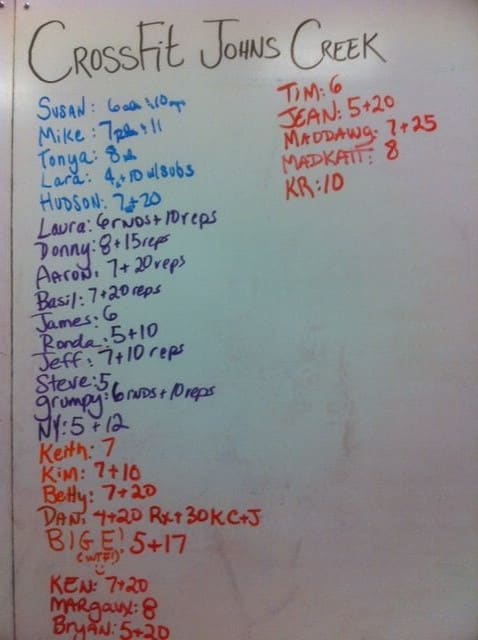 CROSSFIT JOHNS CREEK
SUSAN: 6 + 10
Mike: 7 + 11
Tonya: 8
Lara: 4 + 10 w/subs
HUDSON: 7 + 20
Laura: 6 RNDS + 10 reps
Donny: 8 + 15 reps
AARON: 7 + 20 reps
Basil: 7 + 20 reps
James: 6
Ronda: 5 + 10
Jeff: 7 + 10 reps
Steve: 5
grumpy: 6 RNDS + 10 reps
NY: 5 + 12
Keith: 7
Kim: 7 + 10
Betty: 7 + 20
DAN: 4 + 20 Rx + 30 K C + J
BIG E! 5 + 17
(WTF!)
KEN: 7 + 20
MARGAUX: 8
Bryan: 5 + 20
TIM: 6
JEAN: 5 + 20
MADDAWG: 7 + 25
MADKATT: 8
KR: 10